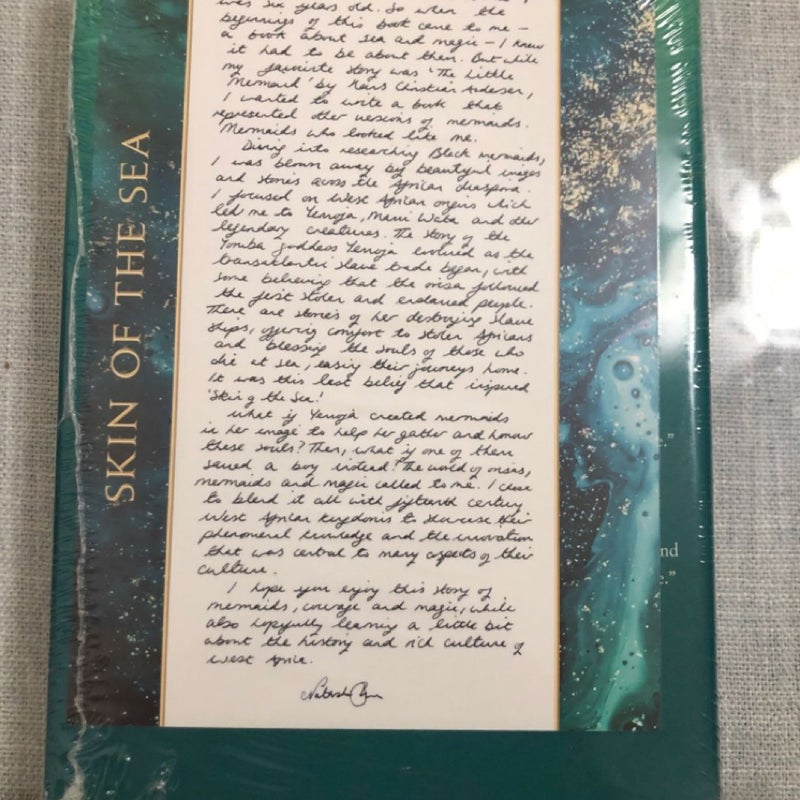 SKIN OF THE SEA
was six years old. So when the
beginnings of this book came to me –
a book about sea and magic – I knew
it had to be about them. But while
my favourite story was 'The Little
Mermaid' by Hans Christian Andersen,
I wanted to write a book that
represented other versions of mermaids.
Mermaids who looked like me.
Diving into researching Black mermaids,
I was blown away by beautiful images
and stories across the African diaspora.
I focused on West African origins which
led me to Yemoja, Mami Wata and other
legendary creatures. The story of the
Yoruba goddess Yemoja evolved as the
transatlantic slave trade began, with
some believing that the orisa followed
the first stolen and enslaved people.
There are stories of her destroying slave
ships, offering comfort to stolen Africans
and blessing the souls of those who
die at sea, easing their journeys home.
It was this last belief that inspired
'Skin of the Sea'.
What if Yemoja created mermaids
in her image to help her gather and honour
these souls? Then, what if one of them
saved a boy instead? The world of orisas,
mermaids and magic called to me. I chose
to blend it all with fifteenth century
West African kingdoms to showcase their
phenomenal knowledge and the innovation
that was central to many aspects of their
culture.
I hope you enjoy this story of
mermaids, courage and magic, while
also hopefully learning a little bit
about the history and rich culture of
West Africa.
nd
e."